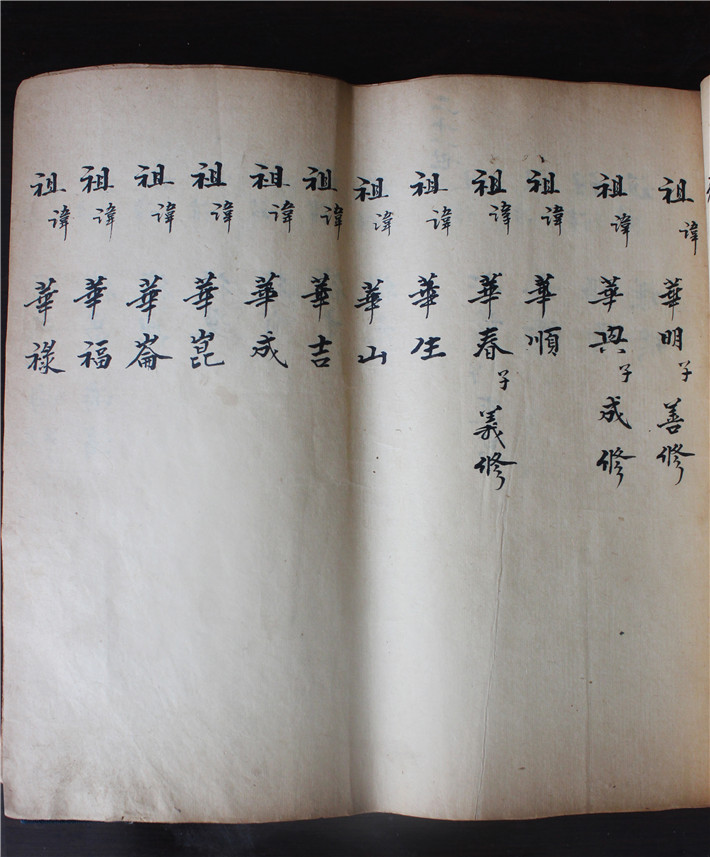 祖諱華明子善修
祖諱華興子成修
祖諱華順
祖諱華春子義修
祖諱華生
祖諱華山
祖諱華吉
祖諱華成
祖諱華崑
祖諱華崙
祖諱華福
祖諱華祿